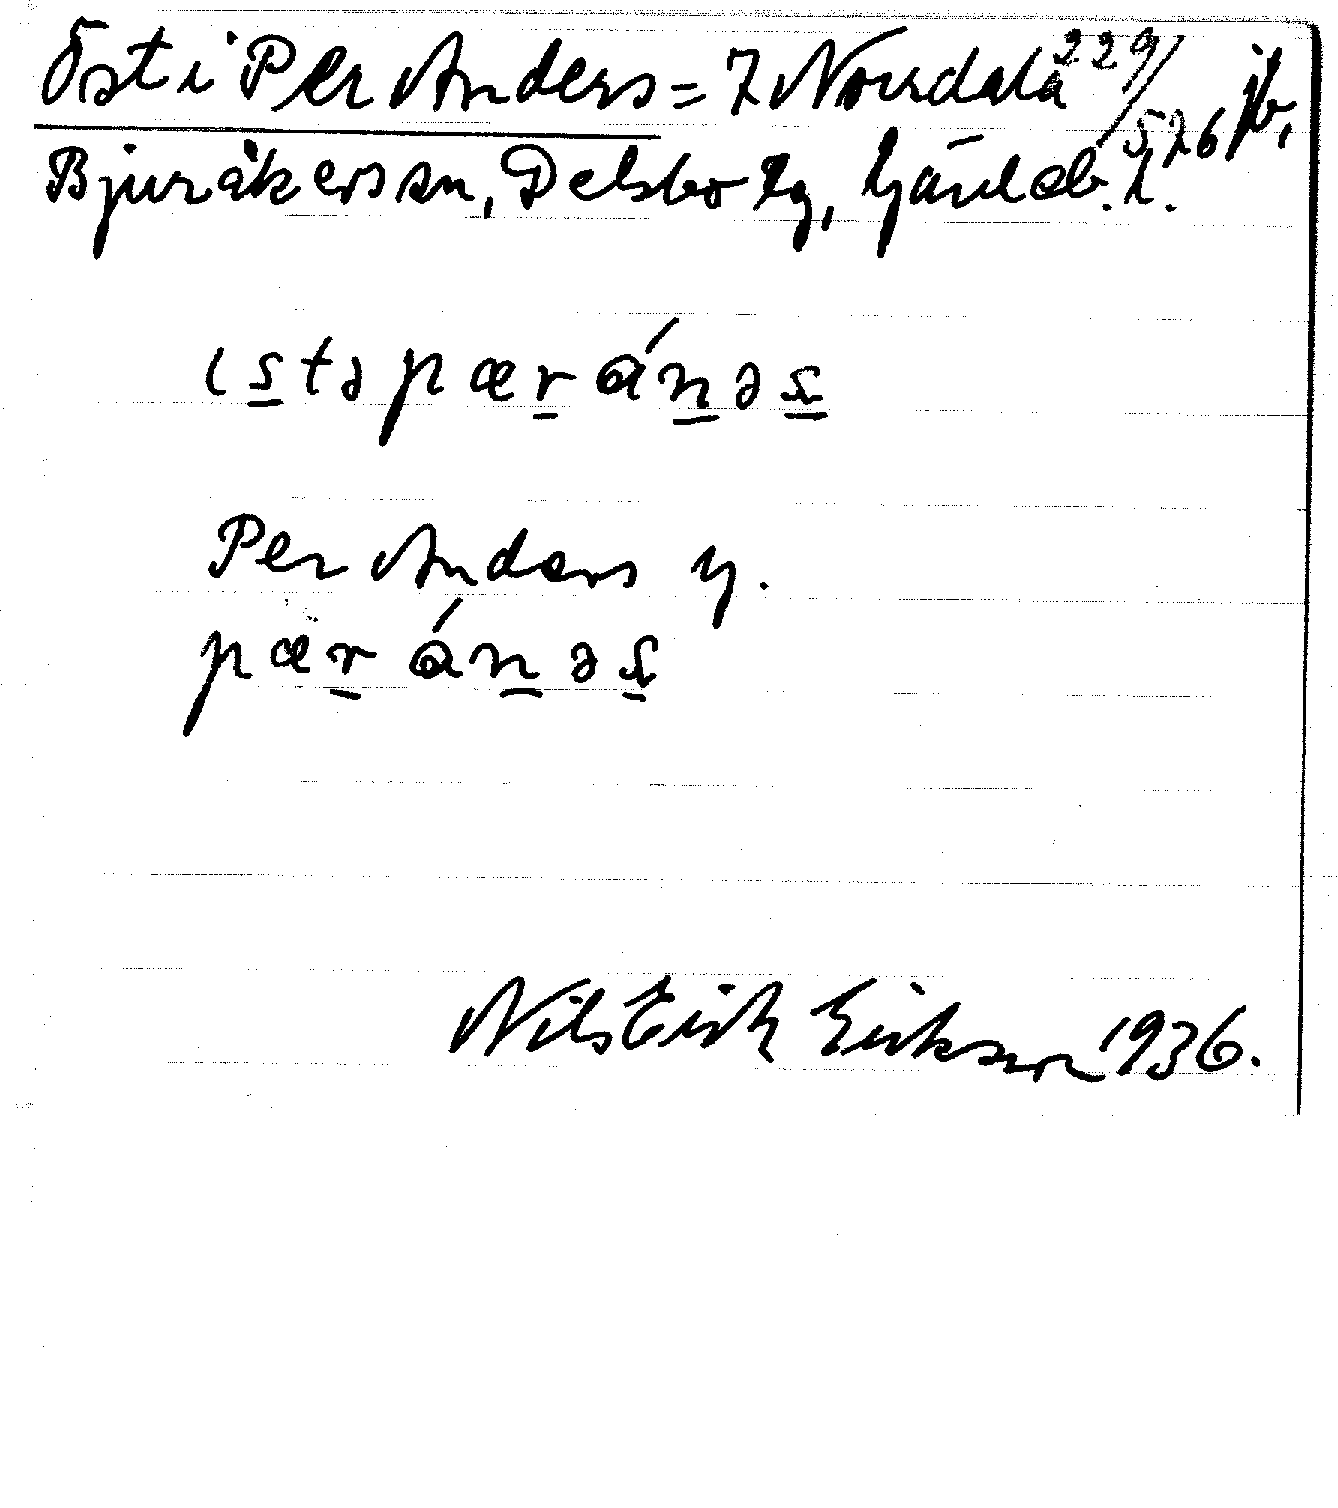 Öst i Per Anders = 7 Norrdala 229/576 jb,
Bjuråkers sn, Delsbo tg, Gävleb. l.
ɩstəpæránəs
Per Anders y.
pæránəs
Nils Erik Erikson 1936.